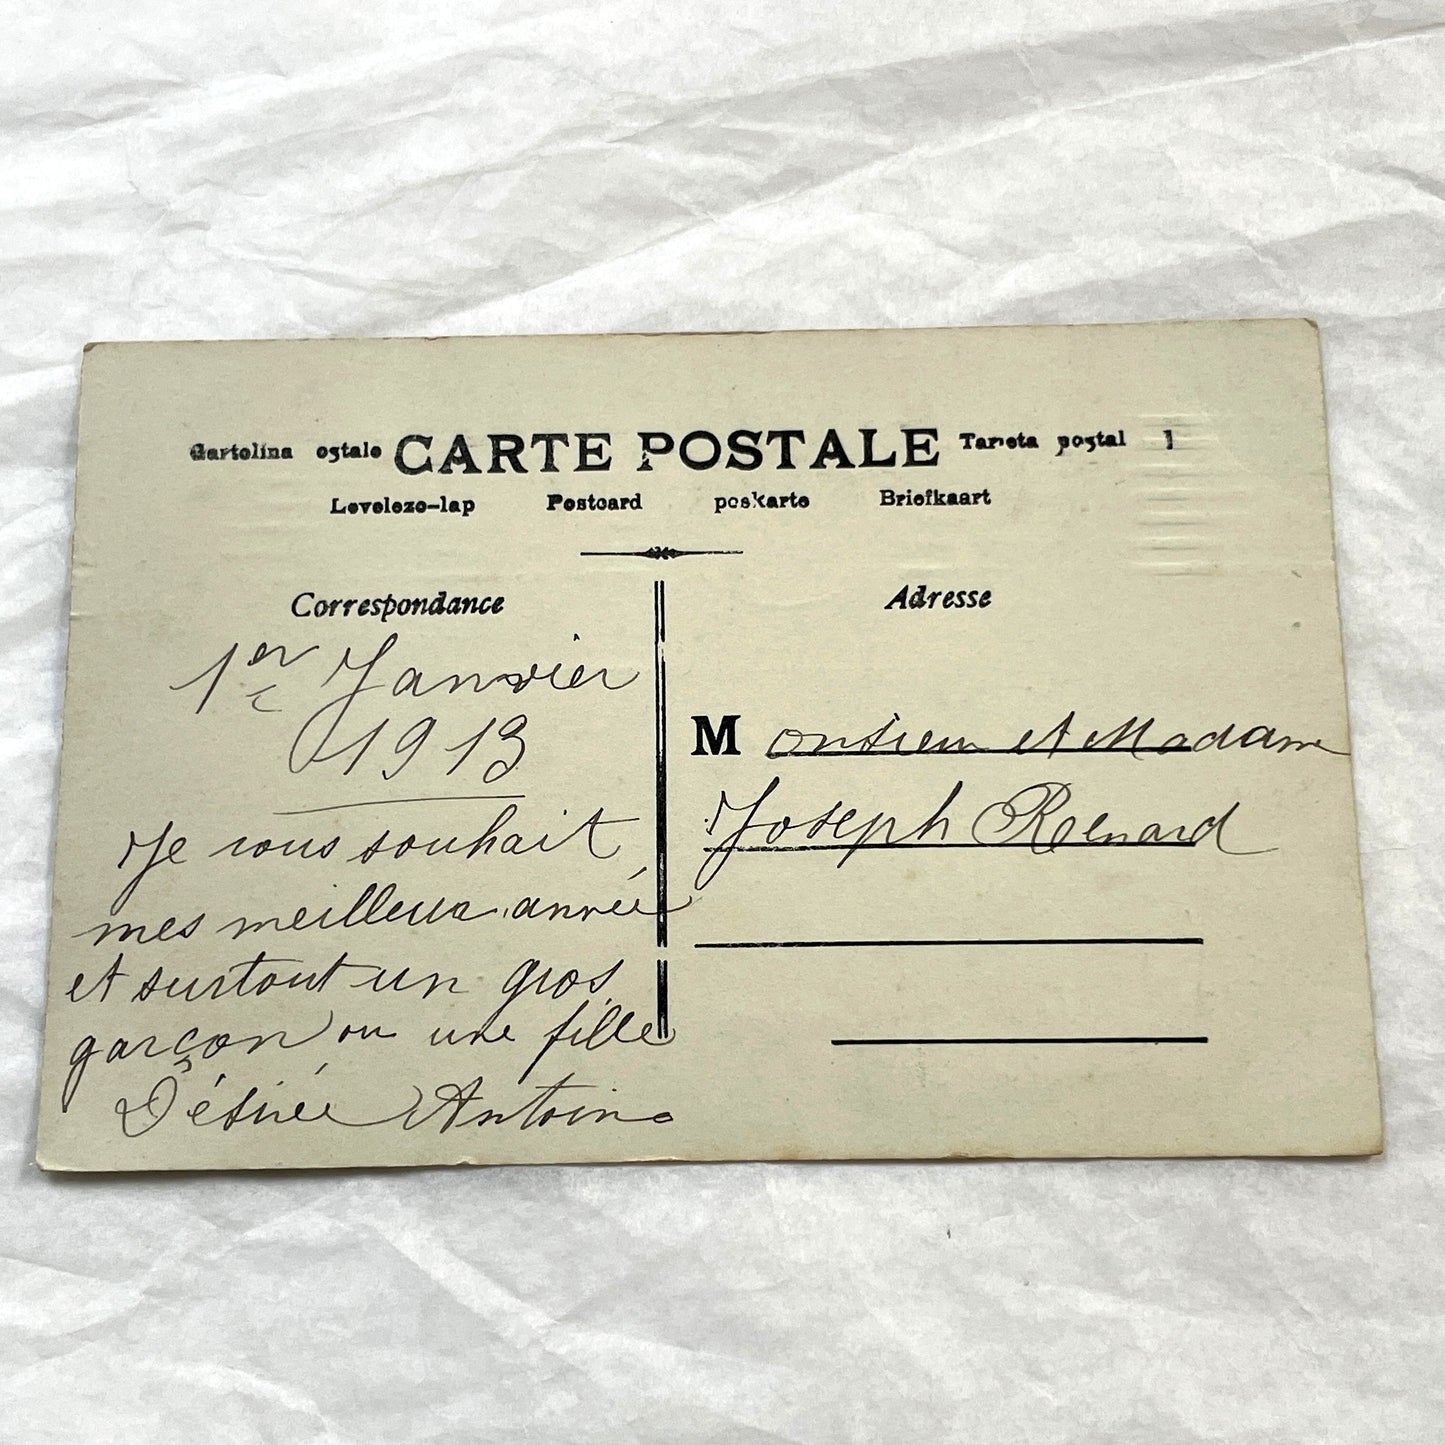 Cartolina ostale CARTE POSTALE Tarjeta postal
Levelezo-lap Postcard poskarte Briefkaart
Correspondance
1er Janvier
1913
Je vous souhait
mes meilleux année
et surtout un gros
garçon ou une fille
Désirée Antoine
Adresse
Monsieur et Madame
Joseph Renard